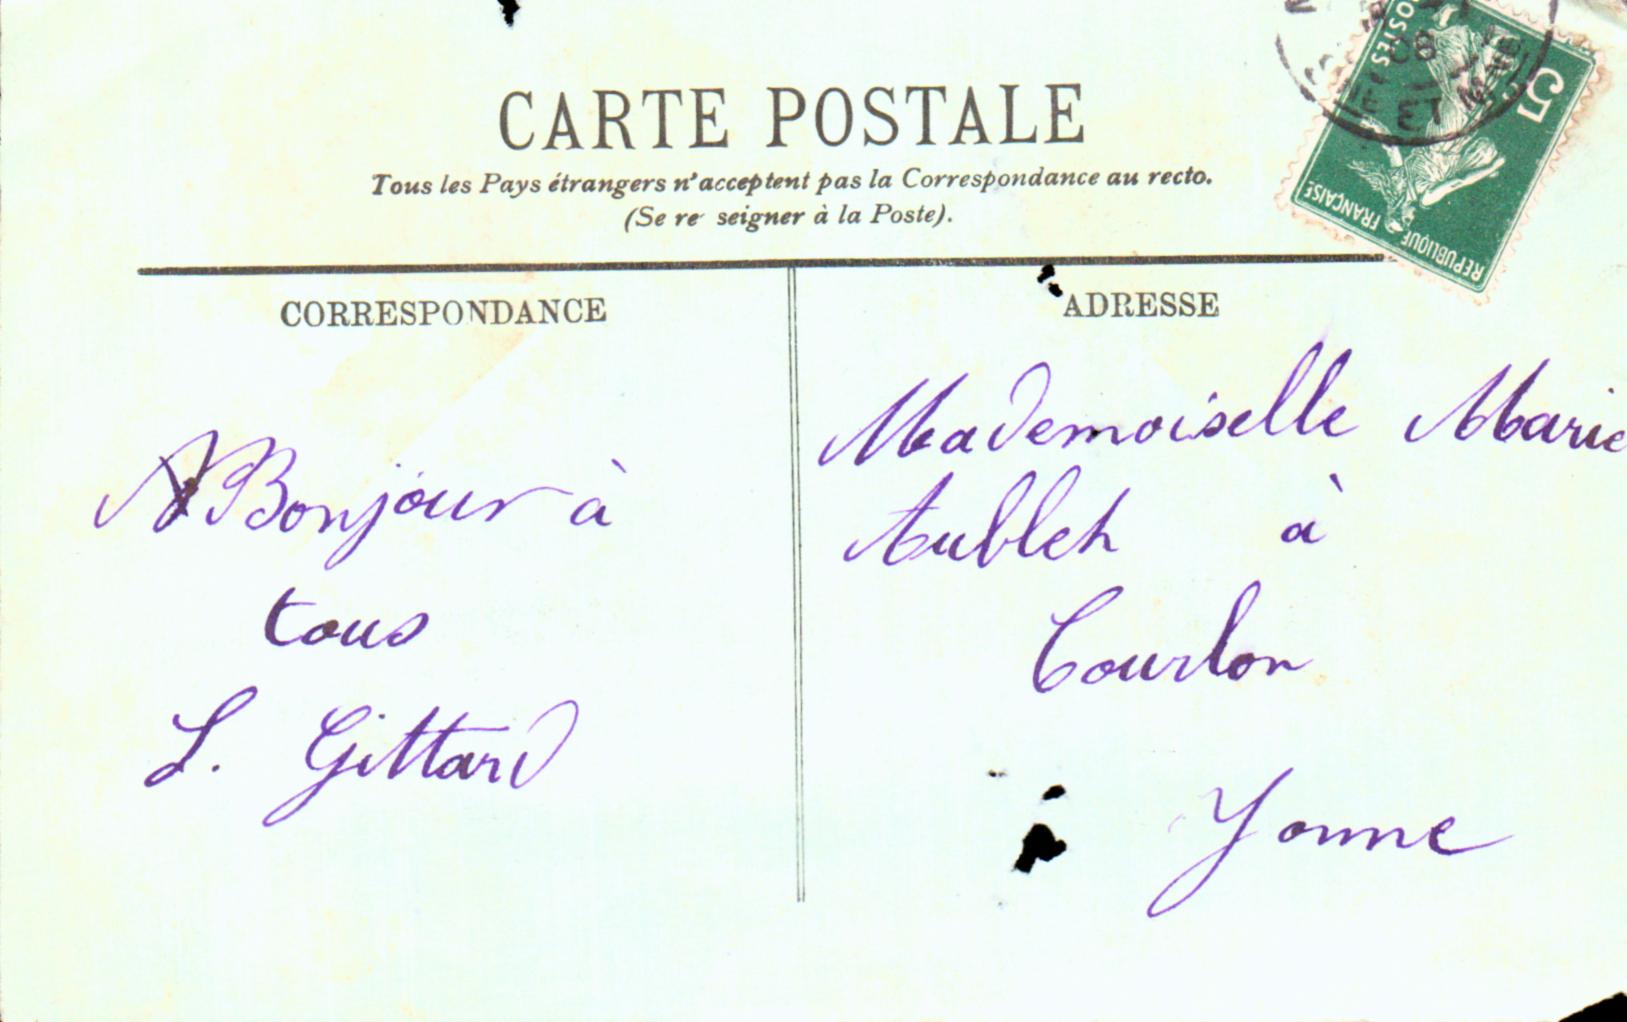 CARTE POSTALE
Tous les Pays étrangers n'acceptent pas la Correspondance au recto.
(Se re seigner à la Poste).
CORRESPONDANCE
Bonjour à
tous
L. Gittard
ADRESSE
Mademoiselle Marie
à
Courlon
Yonne
POSTES
5
REPUBLIQUE FRANÇAISE
08
ET MARNE